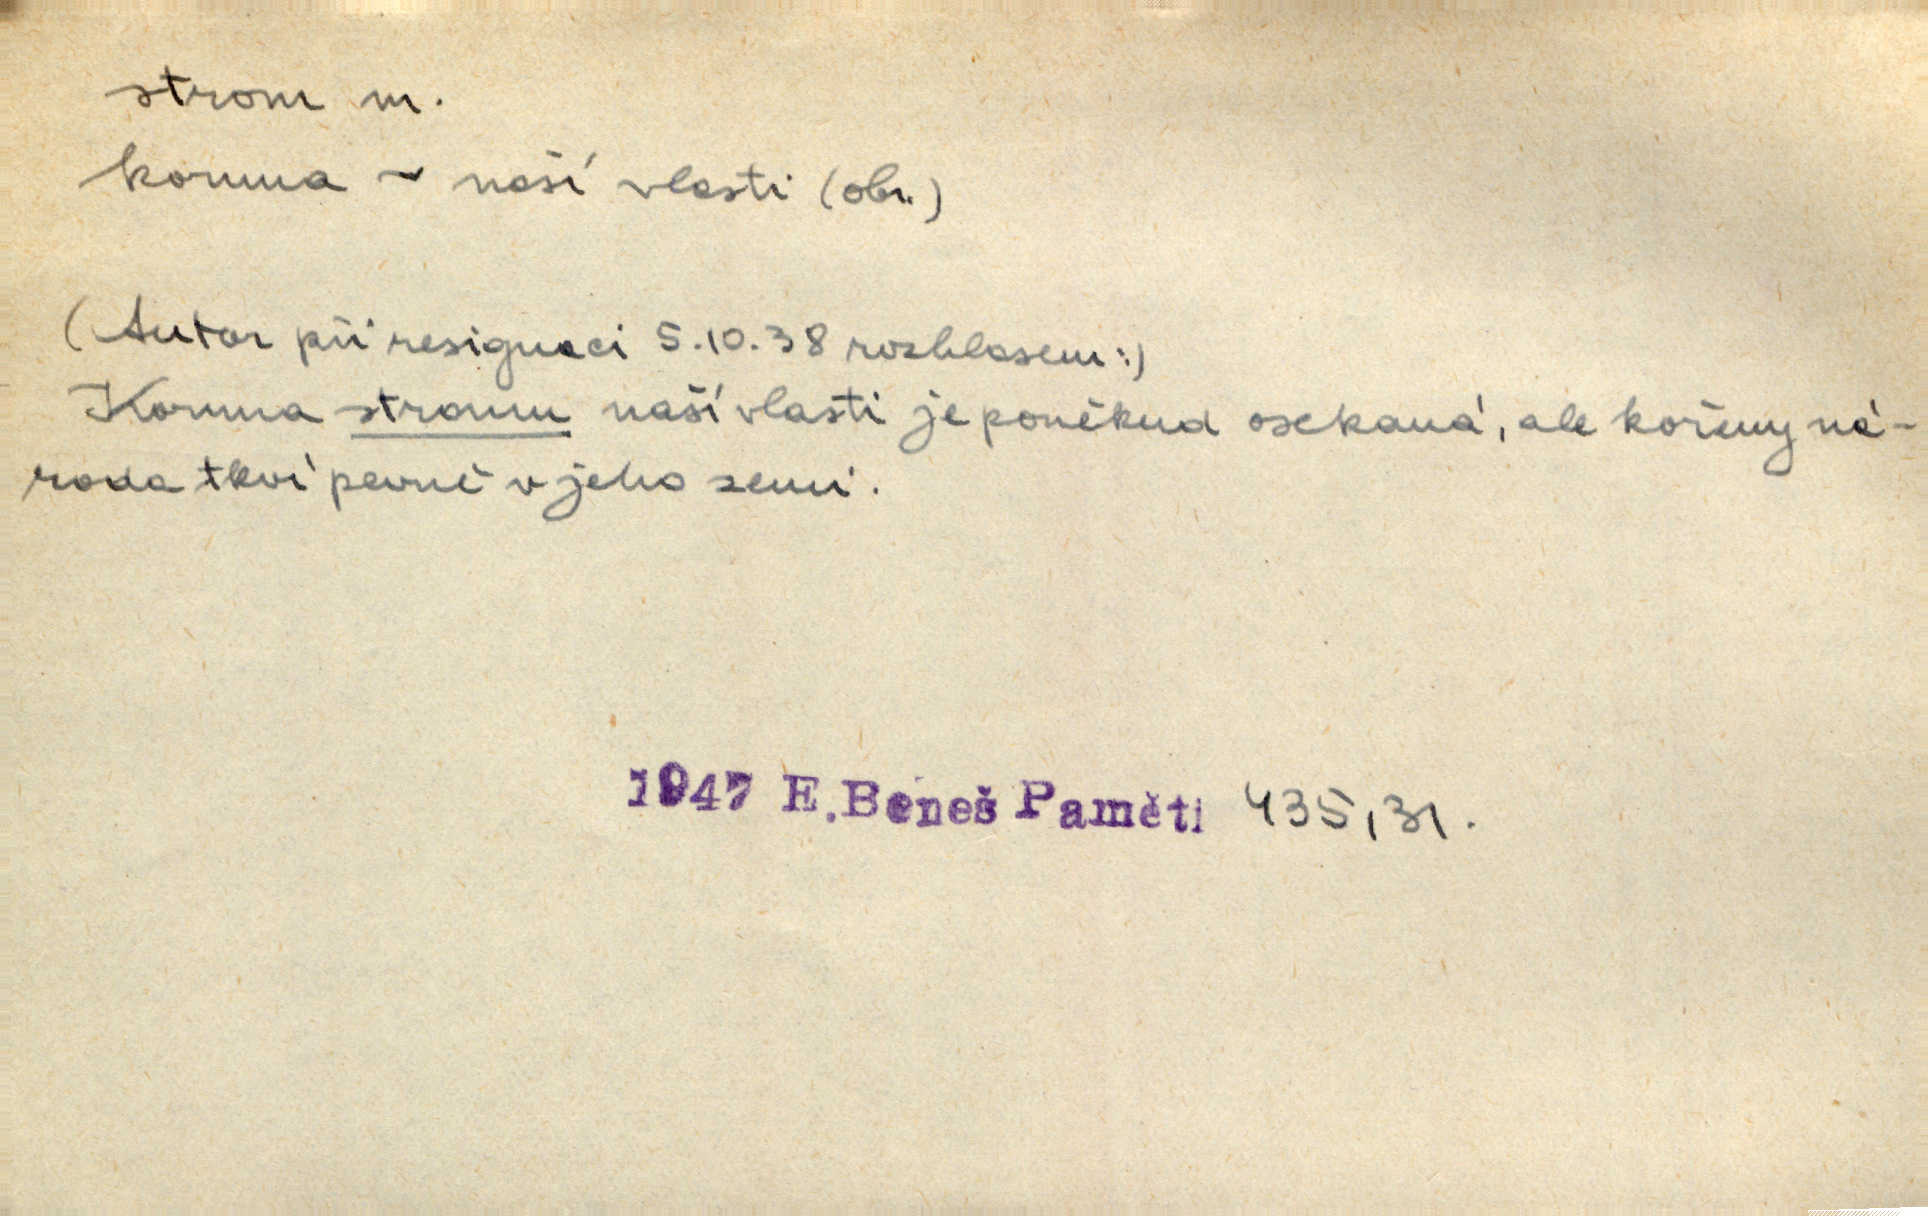 strom m.
koruna ~ naší vlasti (obr.)
(Autor při resignaci 5.10.38 rozhlasem:)
Koruna stromu naší vlasti je poněkud osekaná, ale kořeny ná-
roda tkví pevně v jeho zemi.
1947 E.Beneš Paměti 435,31.